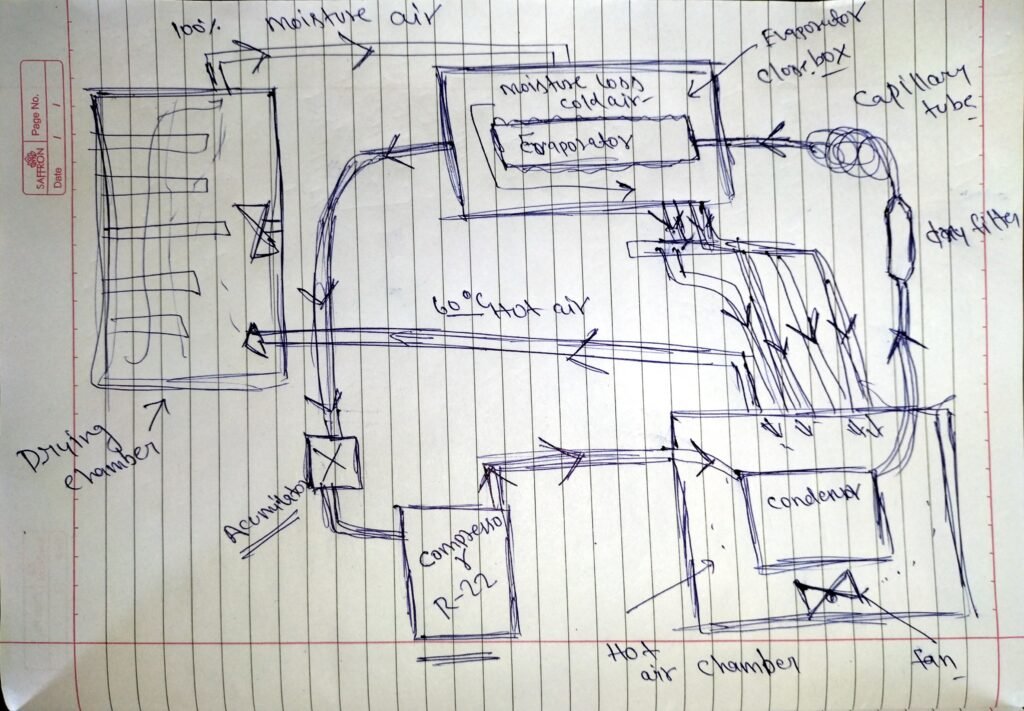 100% moisture air
Evaporator
close box
moisture loss
cold air
Evaporator
Capillary
tube
dry filter
60°C Hot air
Drying
chamber
Acumilator
Compresso
r
R-22
condenser
Hot
air chamber
fan
SAFFRON
Page No.
Date / /